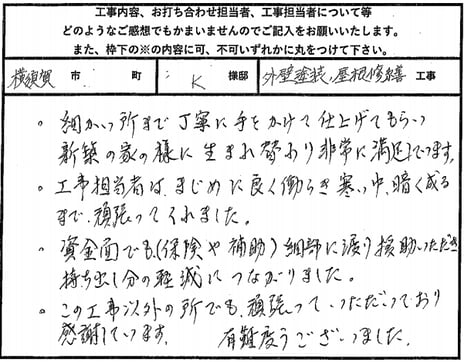 工事内容、お打ち合わせ担当者、工事担当者について等
どのようなご感想でもかまいませんのでご記入をお願いいたします。
また、枠下の※の内容に可、不可いずれかに丸をつけて下さい。
横須賀 市 町 K 様邸 外壁塗装,屋根修繕 工事
。細かい所まで丁寧に手をかけて仕上げてもらい
新築の家の様に生まれ替わり非常に満足してます。
。工事担当者は、まじめに良く働らき寒い中、暗く成る
まで、頑張ってくれました。
。資金面でも(保険や補助)細部に渡り援助いただき
持ち出し分の軽減につながりました。
。この工事以外の所でも、頑張っていただいており
感謝しています。 有難度うございました。